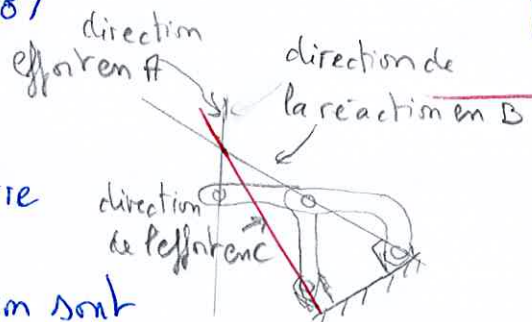 direction
effort en A
direction de
la réaction en B
re
direction
de l'effort en C
on sont